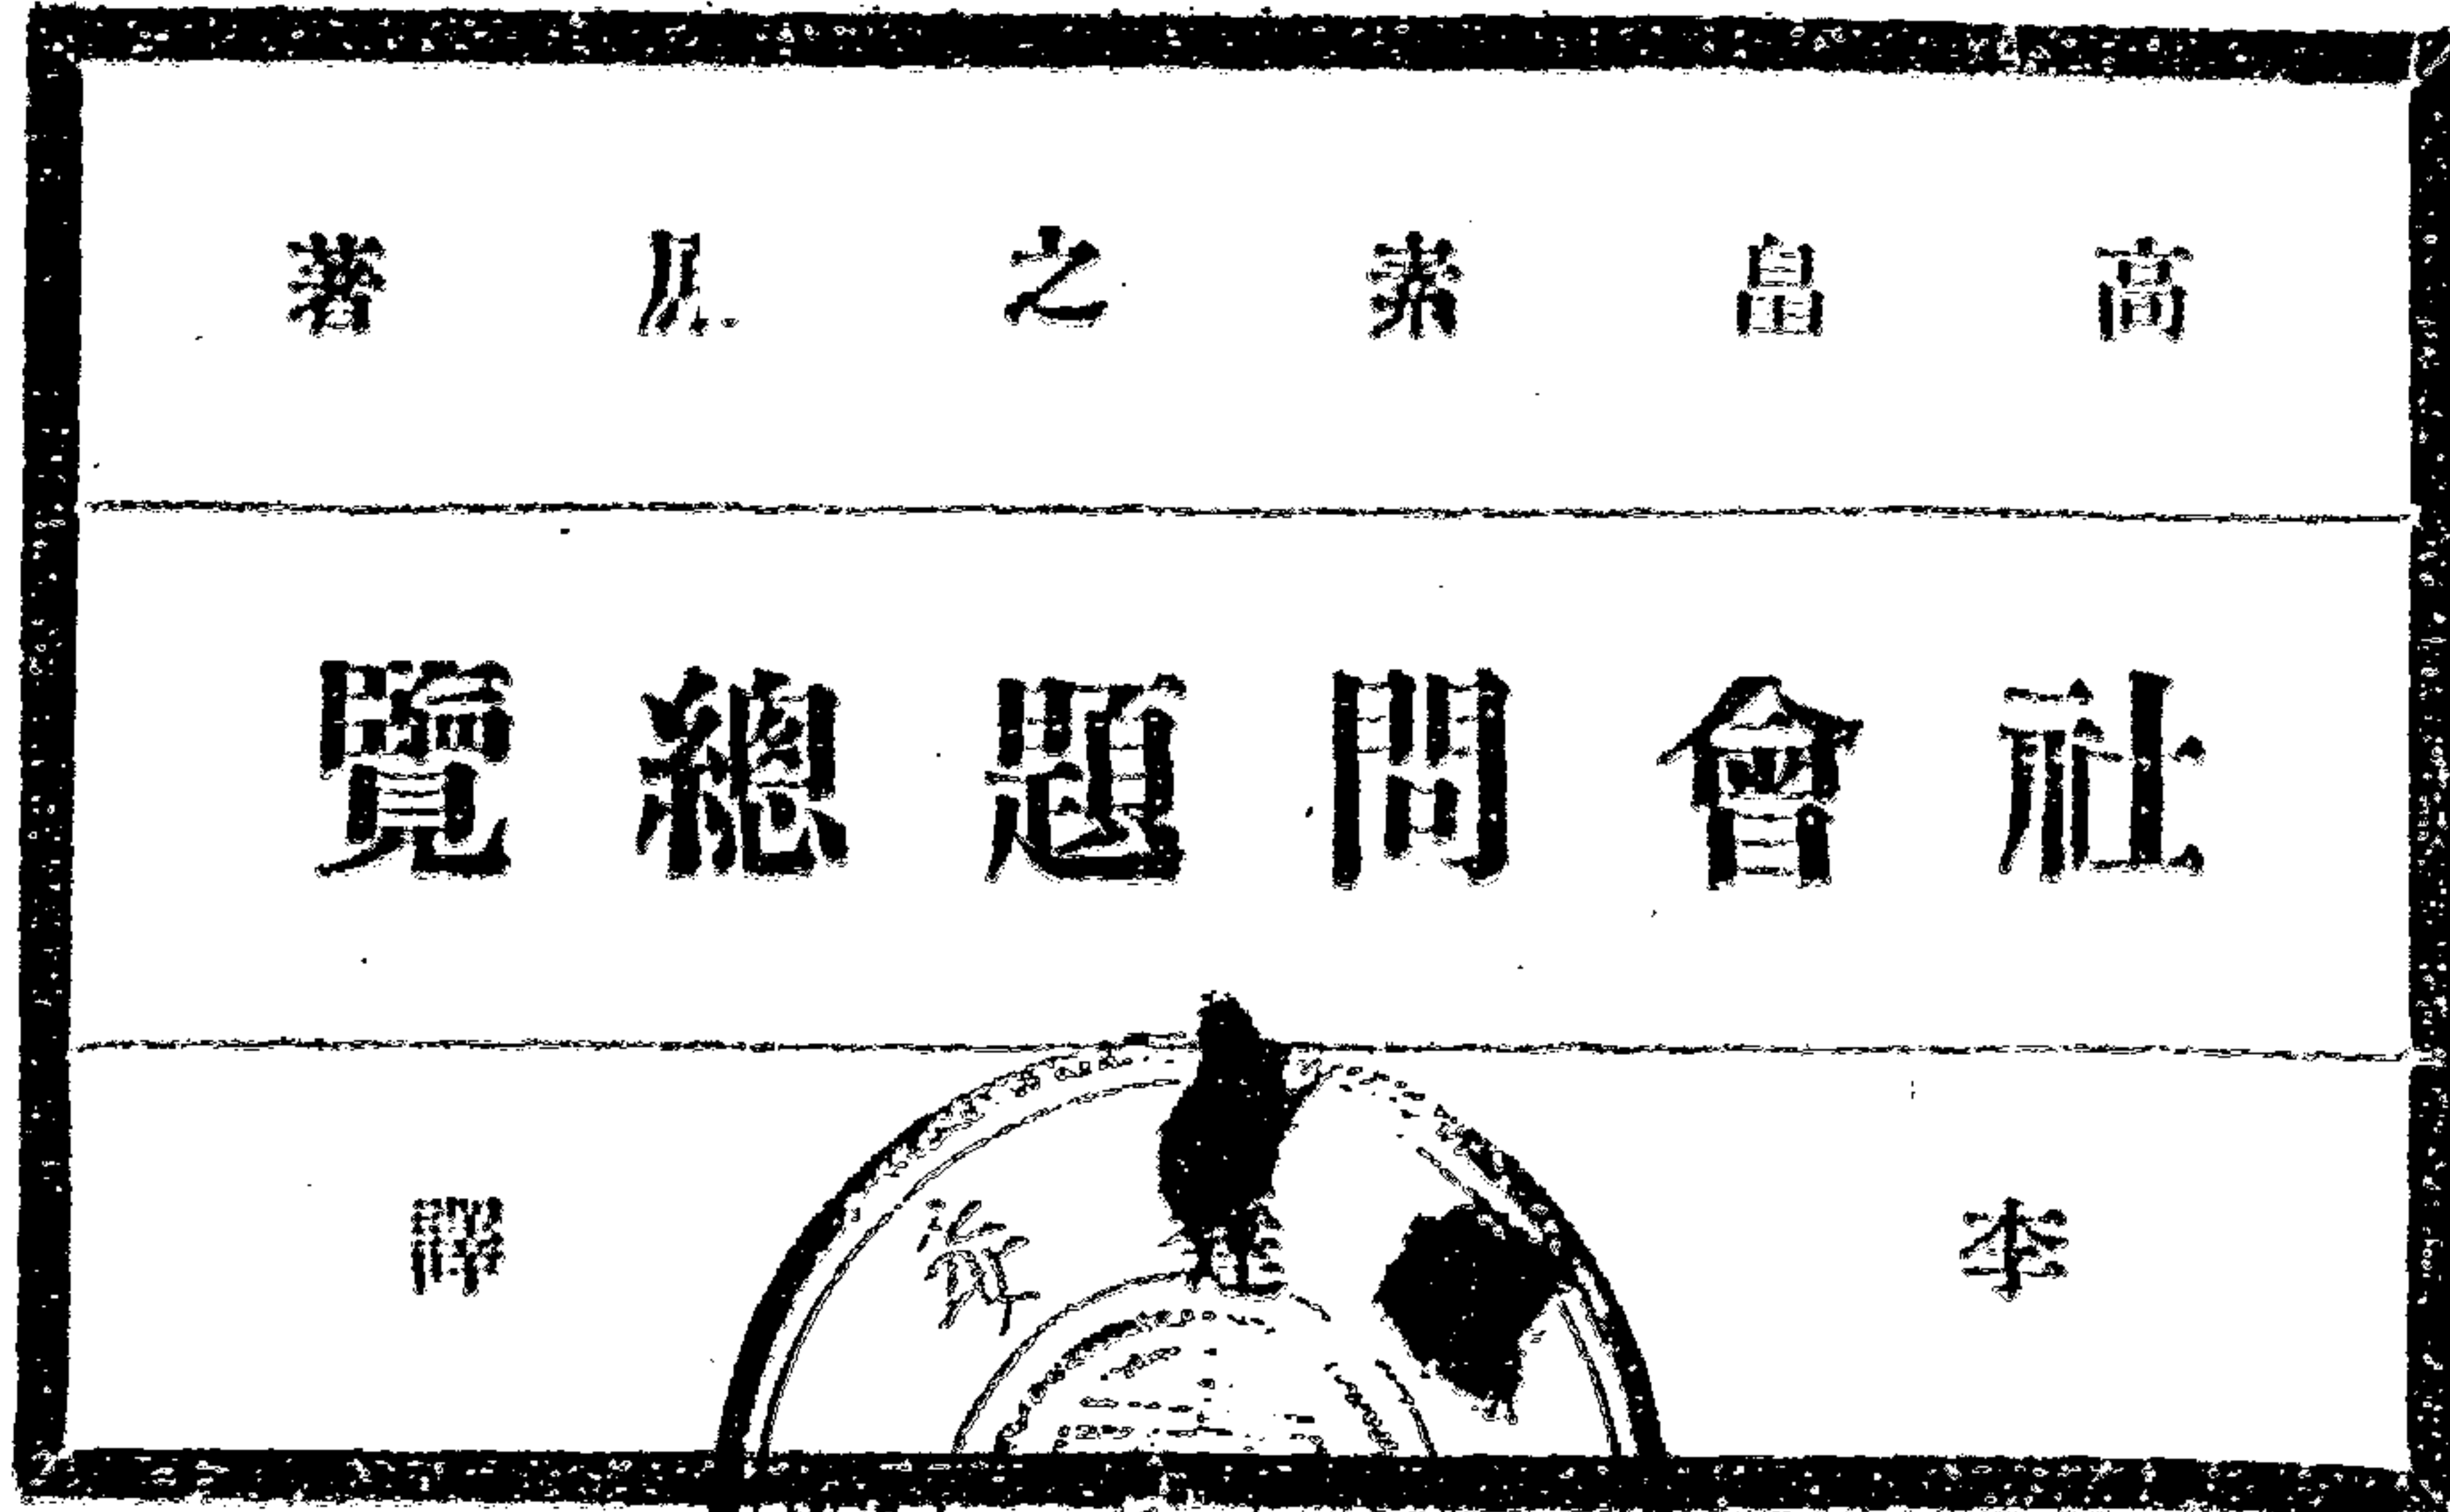 高畠素之著
社會問題總覽
李 譯